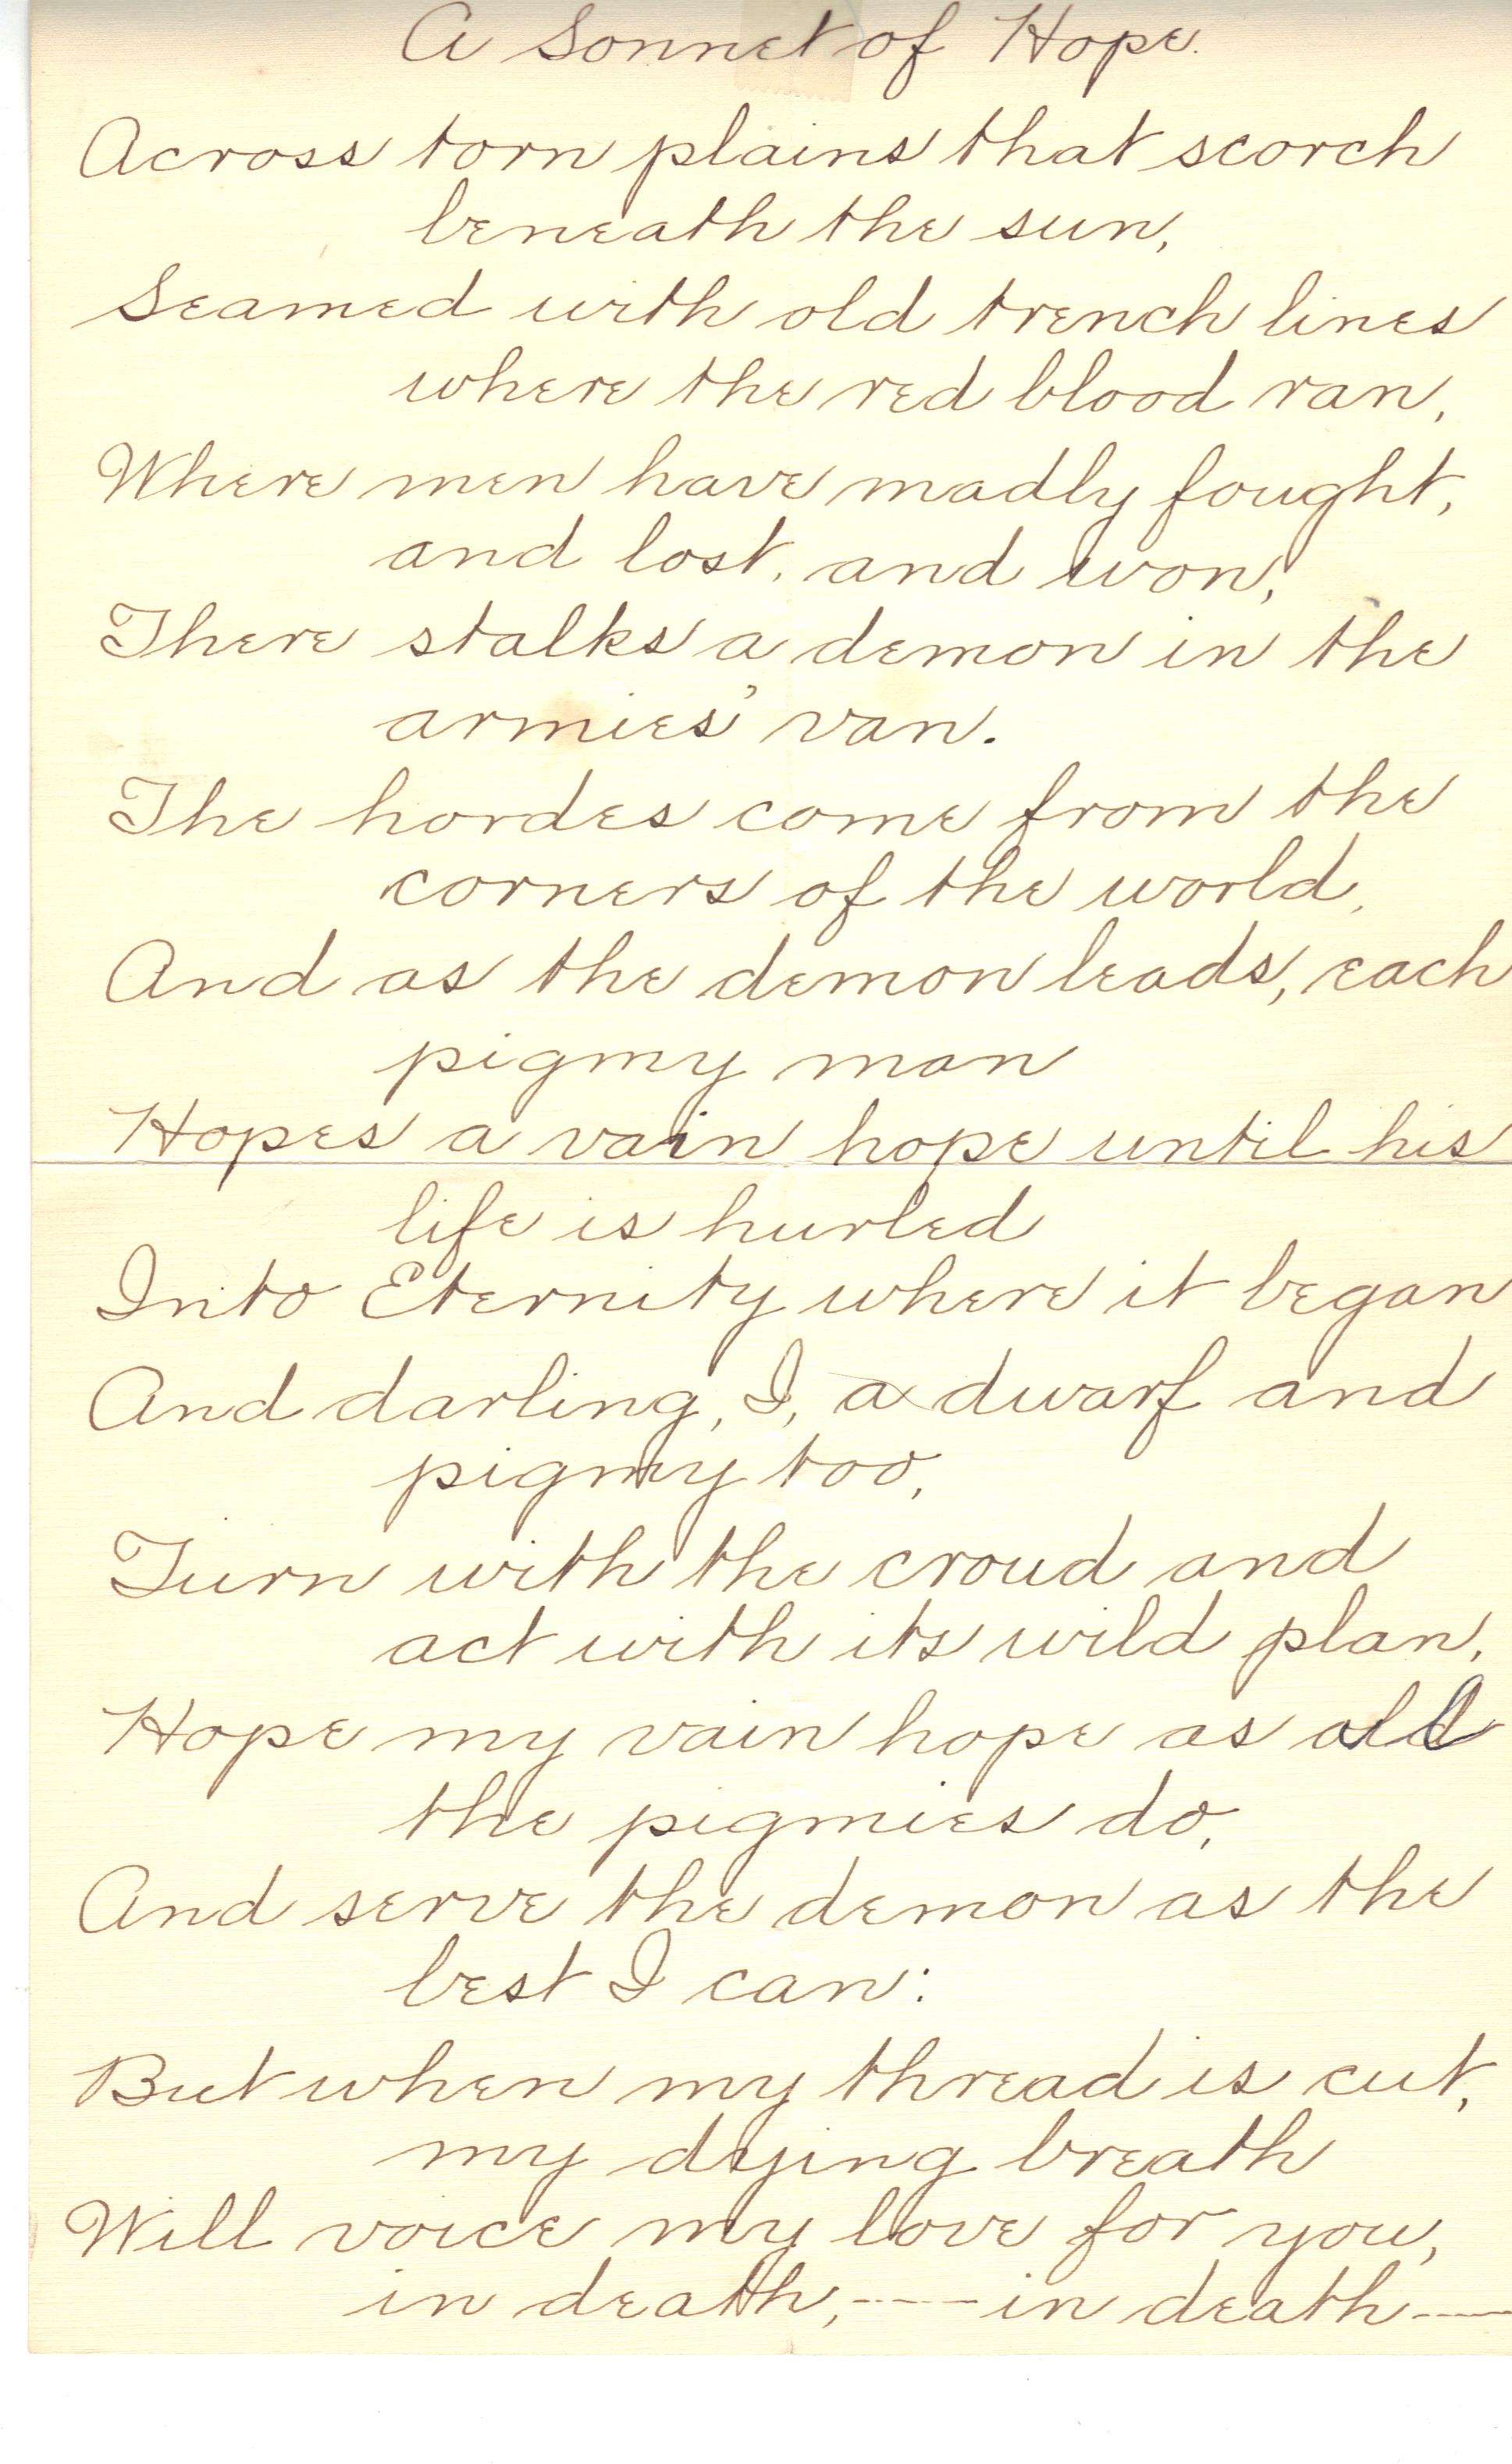 A Sonnet of Hope.
Across torn plains that scorch
beneath the sun,
Seamed with old trench lines
where the red blood ran,
Where men have madly fought,
and lost, and won,
There stalks a demon in the
armies' van.
The hordes come from the
corners of the world,
And as the demon leads, each
pigmy man
Hopes a vain hope until his
life is hurled
Into Eternity where it began
And darling, I, a dwarf and
pigmy too,
Turn with the croud and
act with its wild plan,
Hope my vain hope as all
the pigmies do,
And serve the demon as the
best I can:
But when my thread is cut,
my dying breath
Will voice my love for you,
in death, ---- in death ----